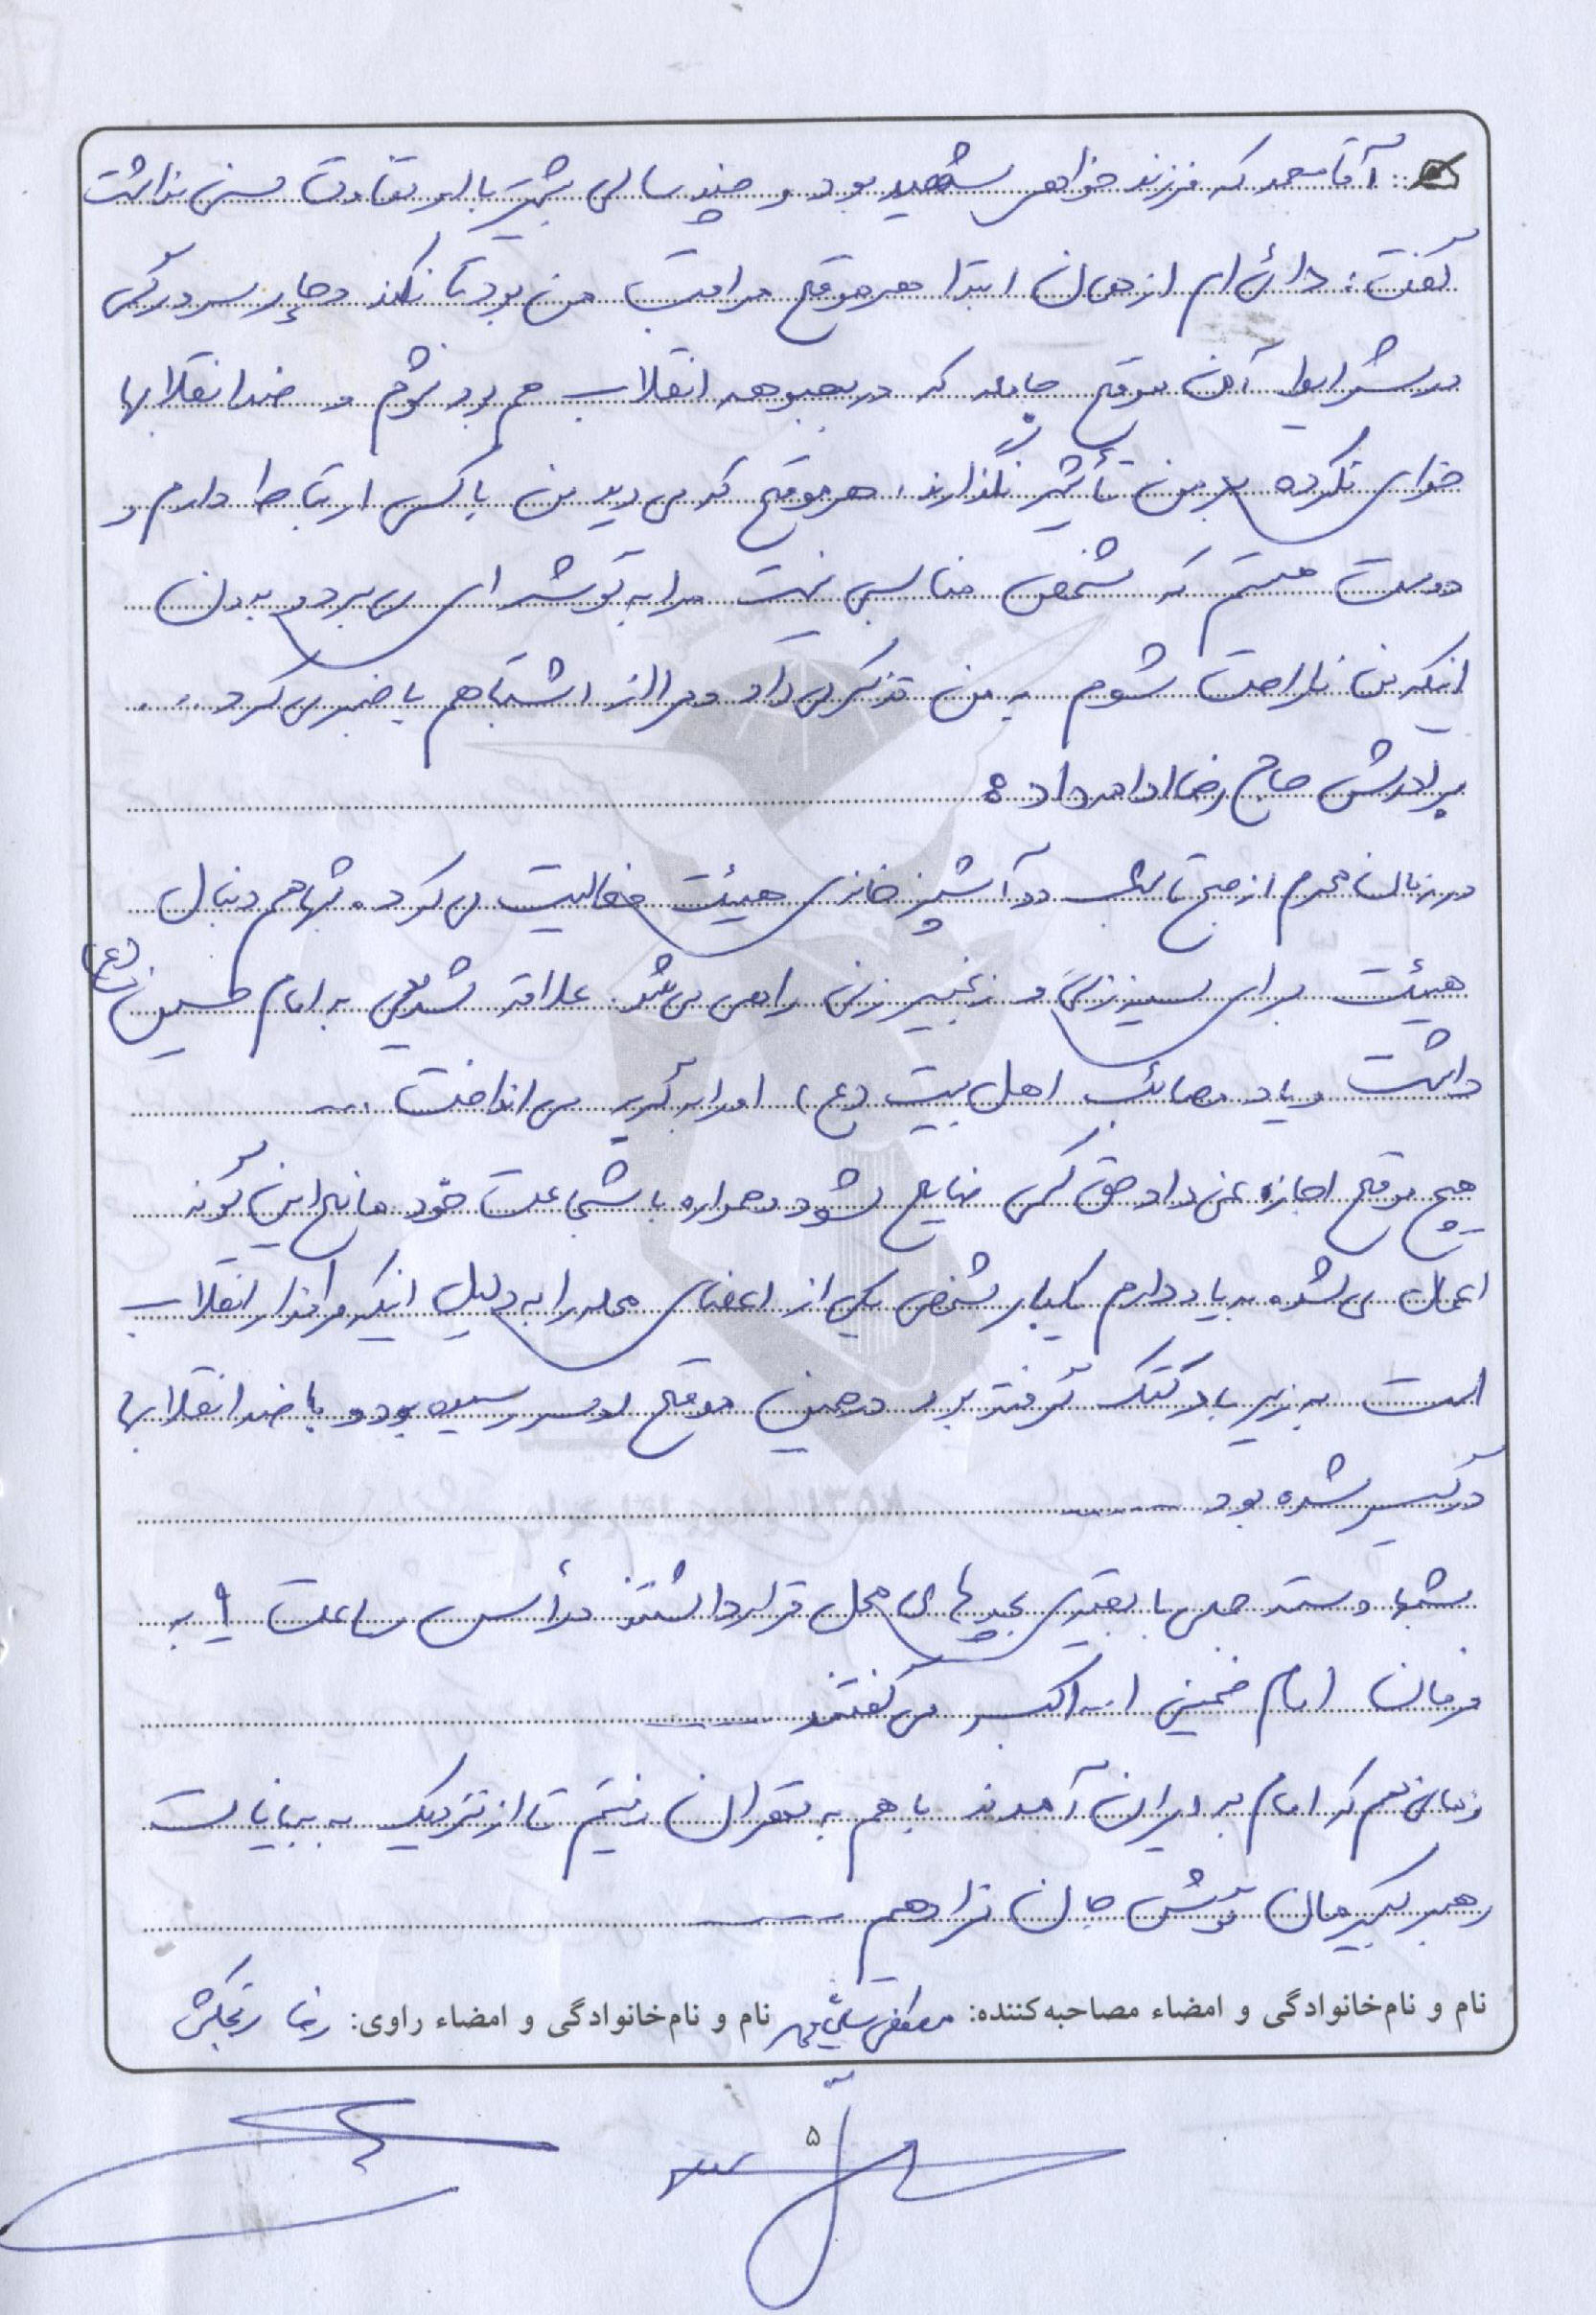 آقا سعید که فرزند خواهر شهید بود و چند سالی بیشتر با او تفاوت سنی نداشت
گفت: دائی ام از همان ابتدا هر موقع مراقب من بود تا نکند دچار سردرگمی
در شرایط آن موقع جامعه که در بحبوحه انقلاب هم بود نشوم و ضد انقلابها
خدای نکرده بر من تأثیر نگذارند، هر موقع که می دید من با کسی ارتباط دارم و
دوست هستم که شخص مناسبی نیست مرا به گوشه ای می برد و بدون
اینکه من ناراحت شوم به من تذکر می داد و مرا از اشتباهم باخبر می کرد...
برادرش حاج رضا ادامه داد:
در زمان محرم از صبح تا شب در آشپزخانه ی هیئت فعالیت می کرد. شبها هم دنبال
هیئت برای سینه زنی و زنجیر زنی راهی می شد. علاقه شدیدی به امام حسین (ع)
داشت و یاد مصائب اهل بیت (ع) او را به گریه می انداخت ...
هیچ موقع اجازه نمی داد حق کسی ضایع شود و همواره با شجاعت خود مانع این گونه
اعمال می شد. به یاد دارم یکبار شخصی یکی از اعضای محله را به دلیل اینکه طرفدار انقلاب
است به زیر باد کتک گرفته بود در همین موقع او سر رسیده بود و با ضد انقلابها
درگیر شده بود ......
شبها دسته جمعی با بقیه ی بچه های محل قرار داشتند و رأس ساعت ۹ به
فرمان امام خمینی الله اکبر می گفتند ......
زمانی هم که امام به ایران آمدند با هم به تهران رفتیم تا از نزدیک به بیانات
رهبر کبیرمان گوش جان فرا دهیم ......
نام و نام خانوادگی و امضاء مصاحبه کننده: مصطفی نام و نام خانوادگی و امضاء راوی: رضا رنجکش
۵